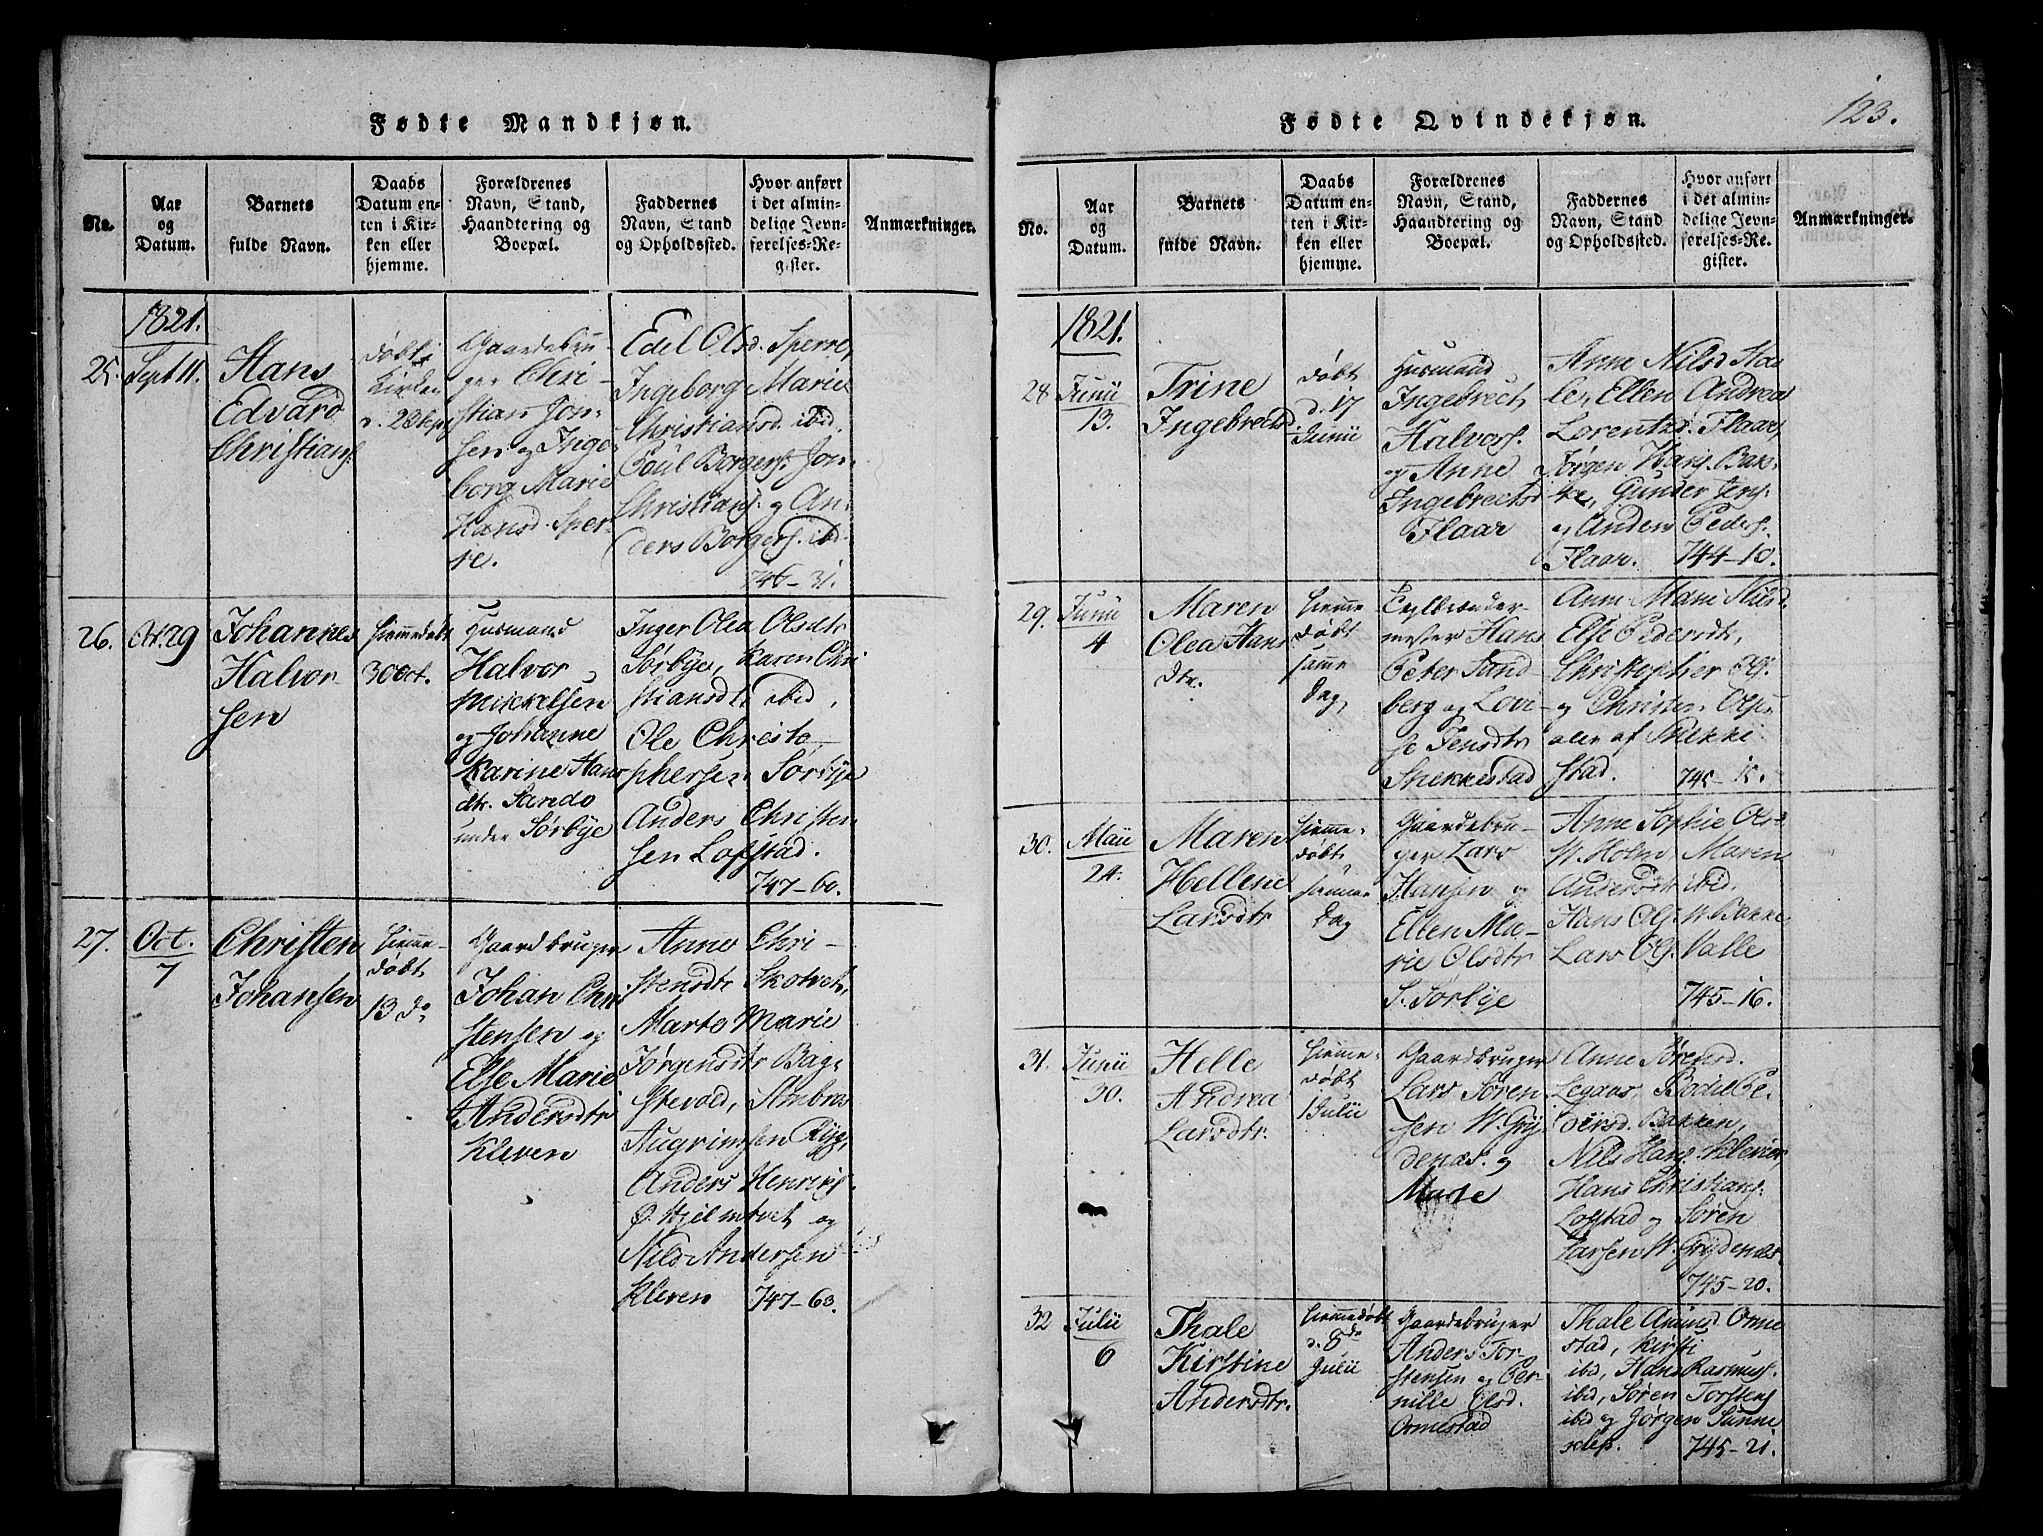 Fødte Mandkjøn.
No.
Aar
og
Datum.
Barnets
fulde Navn.
Daabs
Datum en-
ten i Kir-
ken eller
hjemme.
Forældrenes
Navn, Stand,
Haandtering og
Boepæl.
Faddernes
Navn, Stand
og Opholdssted.
Hvor anført
i det almin-
delige Jevn-
førelses-Re-
gister.
Anmærkninger.
1821.
25.
Sept 11.
Hans
Edvard
Christians.
Døbt i
Kirken
Gaardebru
ger Chri-
stian Jon-
sen og Inge-
borg Marie
Hansd. Sper-
re.
Edel Olsd. Sperre,
Ingeborg Marie
Christiansd. ibid.
Poul Borgers. Jon-
Christians. og An-
ders Borgers. ibd.
746-31.
26.
Oct. 29
Johannes
Halvor
sen
hiemmedøbt
30 Oct.
Husmand
Halvor
Mikkelsen
og Johanne
Karine Hans
dtr. Sando
under Sørbye
Inger Olea Olsdtr
Sørbye, Karen Chri
stiansdtr ibid,
Ole Christo-
phersen Sørbye
Anders Christen-
sen Lofstad.
747-60.
27.
Oct.
7
Christen
Johansen
hiemme-
døbt
13 do
Gaardbruger
Johan Chri
stensen og
Else Marie
Andersdtr
Kleven
Anne Chri-
stensdtr Skotvet,
Marte Marie
Jørgensdtr Bag-
stevold, Ambros
Augrimsen
Anders Henriks.
Ø. Hjelmtvet og
Nils Andersen
Kleven 747-63.
Fødte Qvindekjøn.
123.
No.
Aar
og
Datum.
Barnets
fulde Navn.
Daabs
Datum en-
ten i Kir-
ken eller
hjemme.
Forældrenes
Navn, Stand,
Haandtering og
Boepæl.
Faddernes
Navn, Stand
og Opholdssted.
Hvor anført
i det almin-
delige Jevn-
førelses-Re-
gister.
Anmærkninger.
1821.
28
Junii
13.
Trine
Ingebrectsd
døbt
d. 17
Junii
Husmand
Ingebrect
Halvors.
og Anne
Ingebrectsd
Flaar
Anne Nilsd Haa
le, Ellen Andrea
Lorentsd. Flaar,
Jørgen Hans. Bak-
ke, Gunder Jens.
og Anders Peders.
Flaar. 744-10.
29.
Junii
4
Maren
Olea Hans
dtr.
hiemme
døbt
samme
Dag,
Teglbrænder-
mester Hans
Peter Sand
berg og Lovi-
se Jensdtr
Snekkestad
Anne Marie Nilsd.
Else Pedersdtr,
Christopher Ols.
og Christen Olsen
alle af Snekke
stad. 745-15.
30.
Maii
24.
Maren
Hellene
Larsdtr
hiemme-
døbt
samme
Dag
Gaardebru-
ger Lars
Hansen og
Ellen Ma-
rie Olsdtr
S. Sørbye
Anne Sophie Olsd
W. Holm, Maren
Andersdtr ibid.
Hans Ols. W. Bakke
Lars Ols. Valle
745-16.
31.
Junii
30.
Helle
Andrea
Larsdtr.
hiemme-
døbt
1 Julii
Gaardbruger
Lars Søren
sen W. Gry
denæs. og
Marte
Anne Sørensd.
Legaar, Bodil Pe
dersd. Bakken,
Nils Hans. Kleven,
Hans Christians.
Lofstad og Søren
Larsen W. Grydenæs.
745-20.
32
Julii
6
Thale
Kirstine
Andersdtr.
hiemmedøbt
d. 8de
Julii
Gaardebruger
Anders Tor-
stensen og Per-
nille Olsd.
Ormestad
Thale Amundsd Orme
stad, Kirsti
ibid, Hans Rasmus.
ibid, Søren Torstens.
ibid og Jørgen Sunne
745-21.